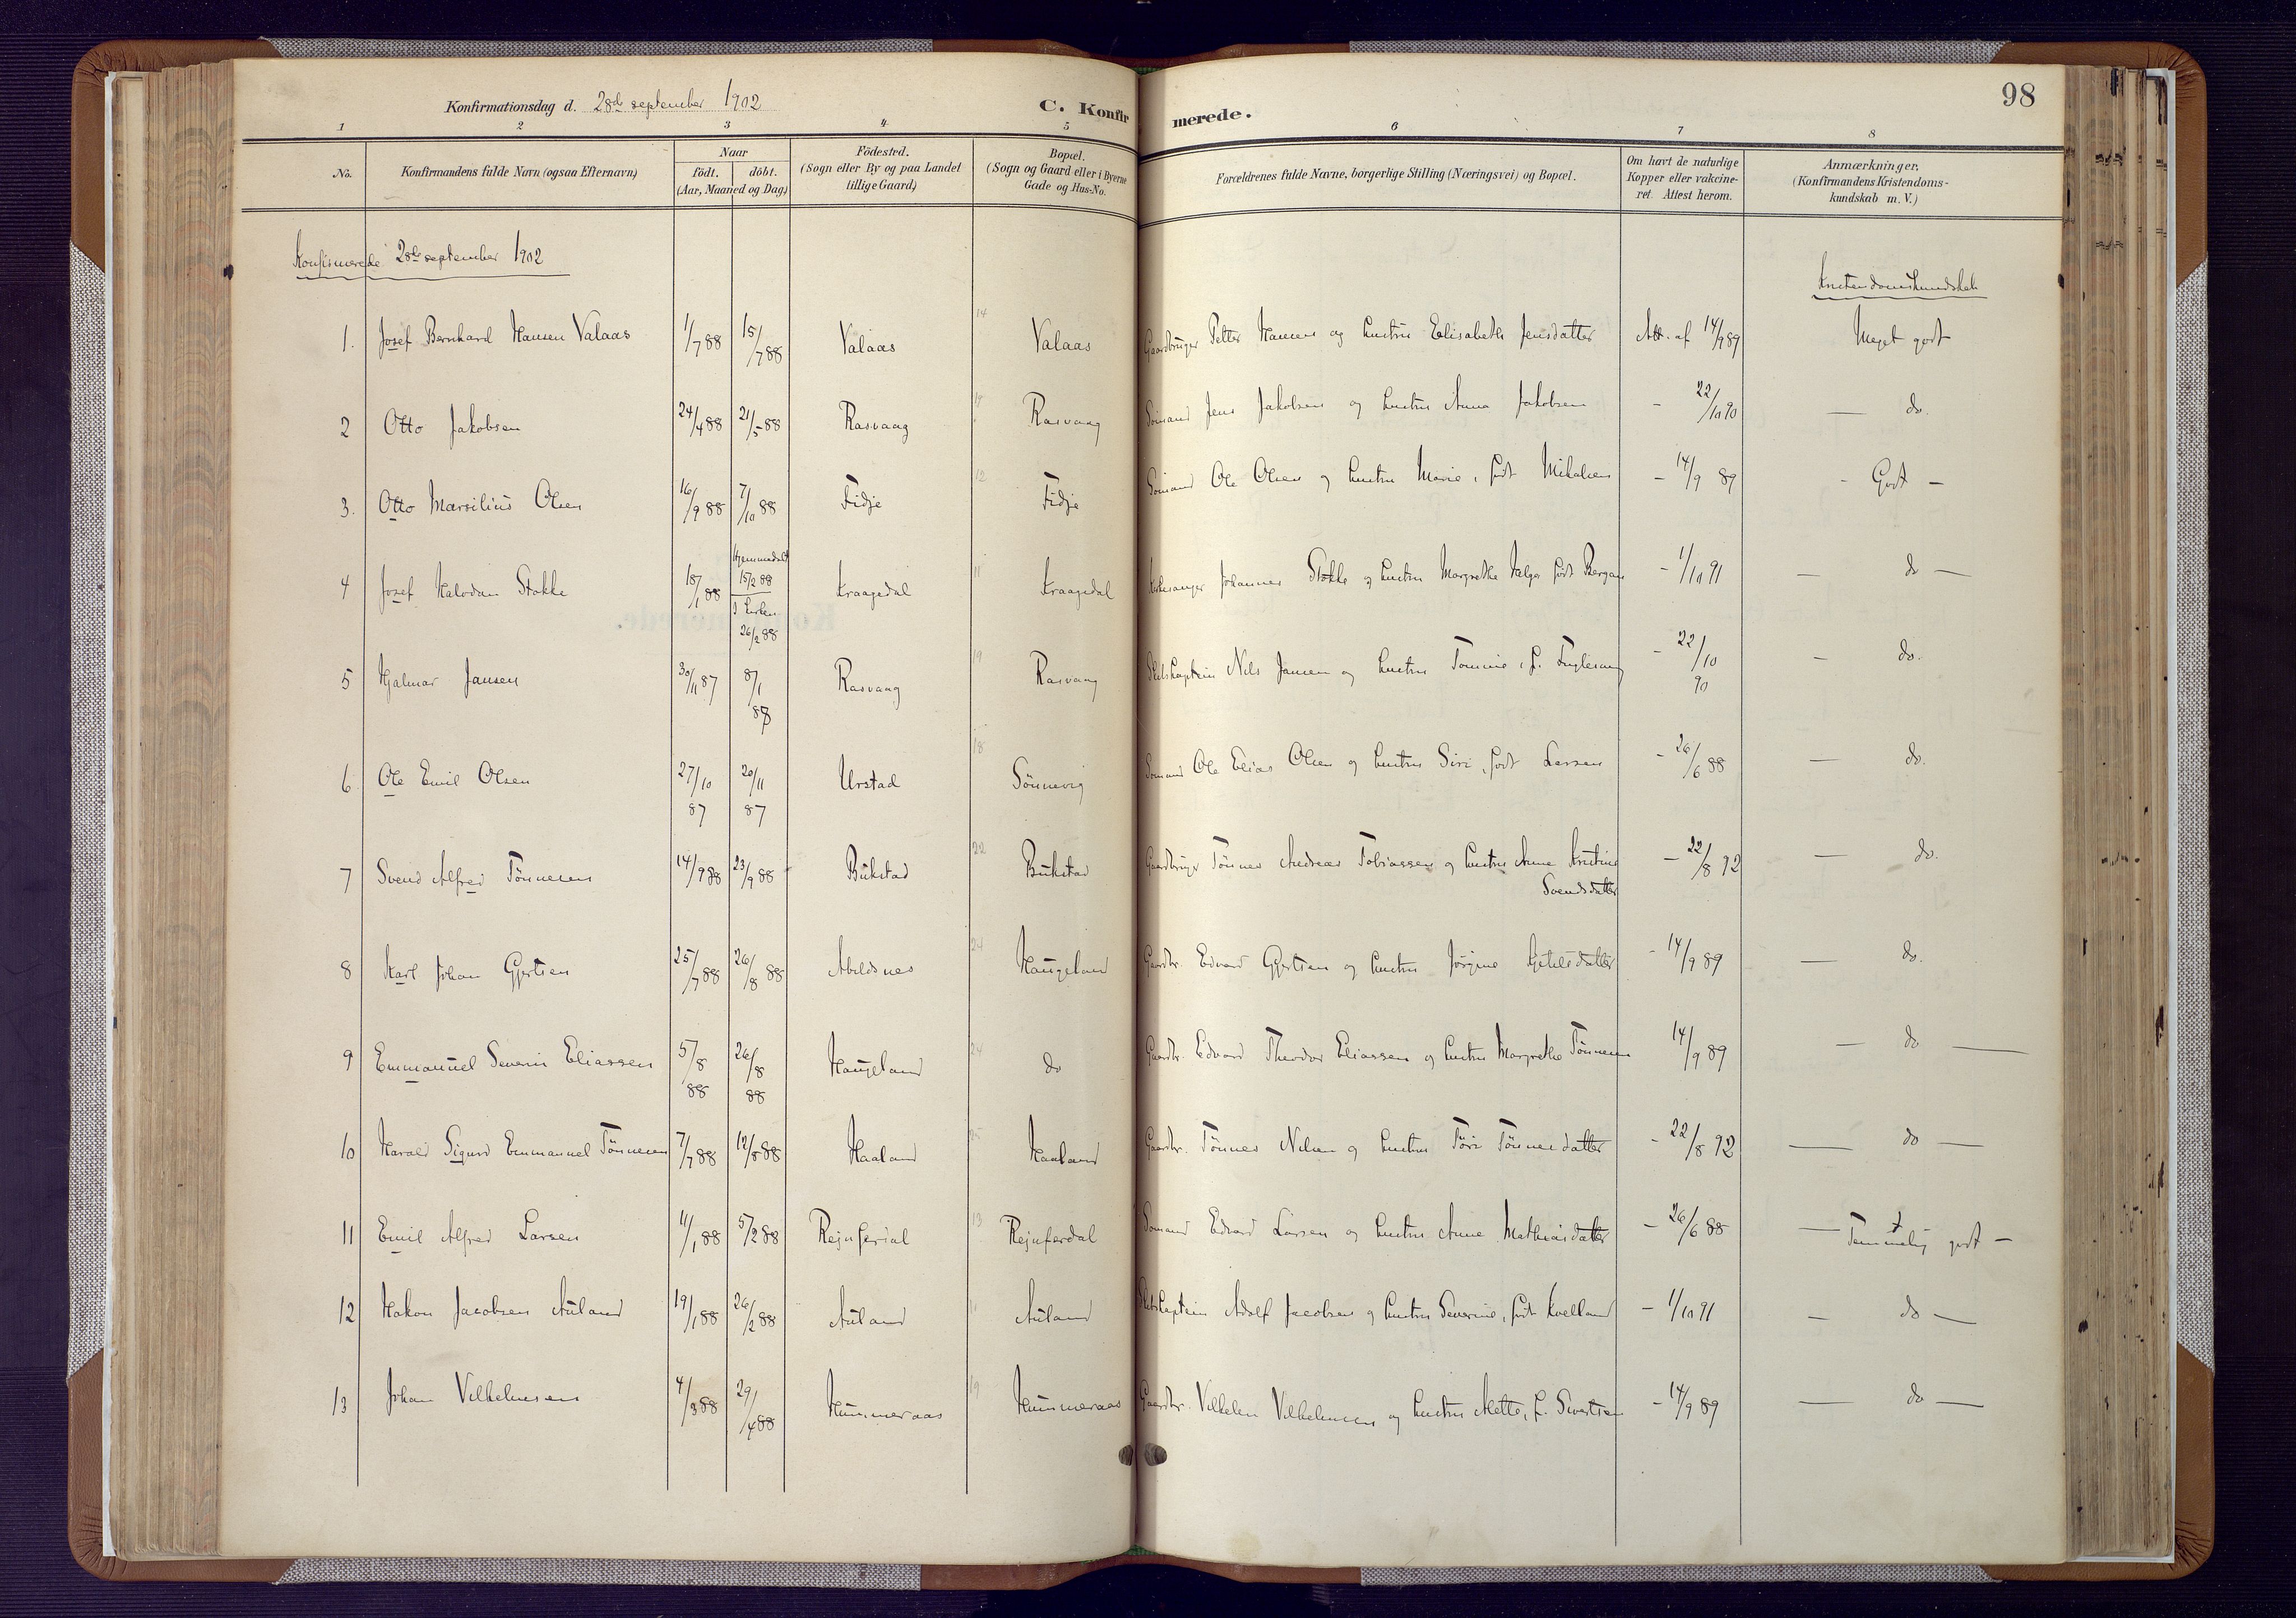 Konfirmationsdag d. 28de september 1902
C. Konfirmerede.
98
1 2 3 4 5 6 7 8
No.
Konfirmandens fulde Navn (ogsaa Efternavn)
Naar
födt. döbt.
(Aar, Maaned og Dag)
Födested.
(Sogn eller By og paa Landet
tillige Gaard)
Bopæl.
(Sogn og Gaard eller i Byerne
Gade og Hus-No.
Forældrenes fulde Navne, borgerlige Stilling (Næringsvei) og Bopæl.
Om havt de naturlige
Kopper eller vakcine-
ret. Attest herom.
Anmærkninger.
(Konfirmandens Kristendoms-
kundskab m. V.)
Konfirmerede 28de september 1902
Kristendomskundskab
1. Josef Bernhard Hansen Valaas 1/7 88 15/7 88 Valaas 14 Valaas Gaardbruger Petter Hansen og hustru Elisabeth Jensdatter Att. af 14/9 89 Meget godt
2 Otto Jakobsen 24/4 88 21/5 88 Rasvaag Rasvaag Sömand Jens Jakobsen og hustru Anna Jakobsen - 22/10 90 — do.
3. Otto Marsilius Olsen 16/9 88 7/10 88 Fidje 12 Fidje Sömand Ole Olsen og hustru Marie, födt Mikalsen - 14/9 89 - Godt -
4 Josef Halvdan Stokke 18/1 88 Hjemmedøbt 15/2 88 I Kirken 26/2 88 Kraagedal 11 Kraagedal Kirkesanger Johannes Stokke og hustru Margrethe Helga födt Bergan - 1/10 91 — do —
5 Hjalmar Jansen 30/11 87 8/1 88 Rasvaag 19 Rasvaag Skibskaptein Nils Jansen og hustru Tomine, f. Fuglevaag - 22/10 90 — do.
6 Ole Emil Olsen 27/10 87 20/11 87 Urstad 18 Sönnevig Sömand Ole Elias Olsen og hustru Siri, födt Larsen - 26/6 88 — do.
7 Svend Alfred Tönnesen 14/9 88 23/9 88 Bukstad 22 Bukstad Gaardbruger Tönnes Andreas Tobiassen og hustru Anne Kristine
Svendsdatter - 22/8 92 — do.
8 Karl Johan Gjertsen 25/7 88 26/8 88 Abeldsnes 24 Haugeland Gaardbr. Edvard Gjertsen og hustru Jörgine Ketilsdatter - 14/9 89 — do.
9 Emmanuel Severin Eliassen 5/8 88 26/8 88 Haugeland 24 do Gaardbr. Edvard Theodor Eliassen og hustru Margrethe Tönnesen 14/9 89 — do —
10 Harald Sigurd Emmanuel Tönnesen 7/7 88 12/8 88 Haaland 25 Haaland Gaardbr. Tönnes Nilsen og hustru Töri Tönnesdatter - 22/8 92 — do —
11 Emil Alfred Larsen 11/1 88 5/2 88 Rejnferdal 13 Rejnferdal Sömand Edvard Larsen og hustru Anne Mathiasdatter - 26/6 88 — Temmelig godt —
12 Hakon Jacobsen Auland 19/1 88 26/2 88 Auland 11 Auland Skibskaptein Adolf Jacobsen og hustru Severine, födt Kvelland - 1/10 91 — do —
13 Johan Vilhelmsen 4/3 88 29/4 88 Hummeraas 19 Hummeraas Gaardbr. Vilhelm Vilhelmsen og hustru Mette, f. Sivertsen - 14/9 89 — do —